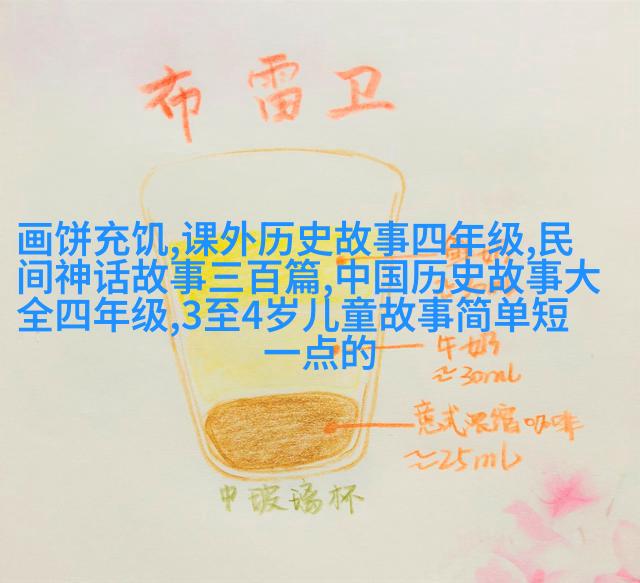 布雷卫
画饼充饥,课外历史故事四年级,民
间神话故事三百篇,中国历史故事大
全四年级,3至4岁儿童故事简单短
一点的
牛奶
≈30ml
意式浓缩咖啡
≈25ml
中玻璃杯